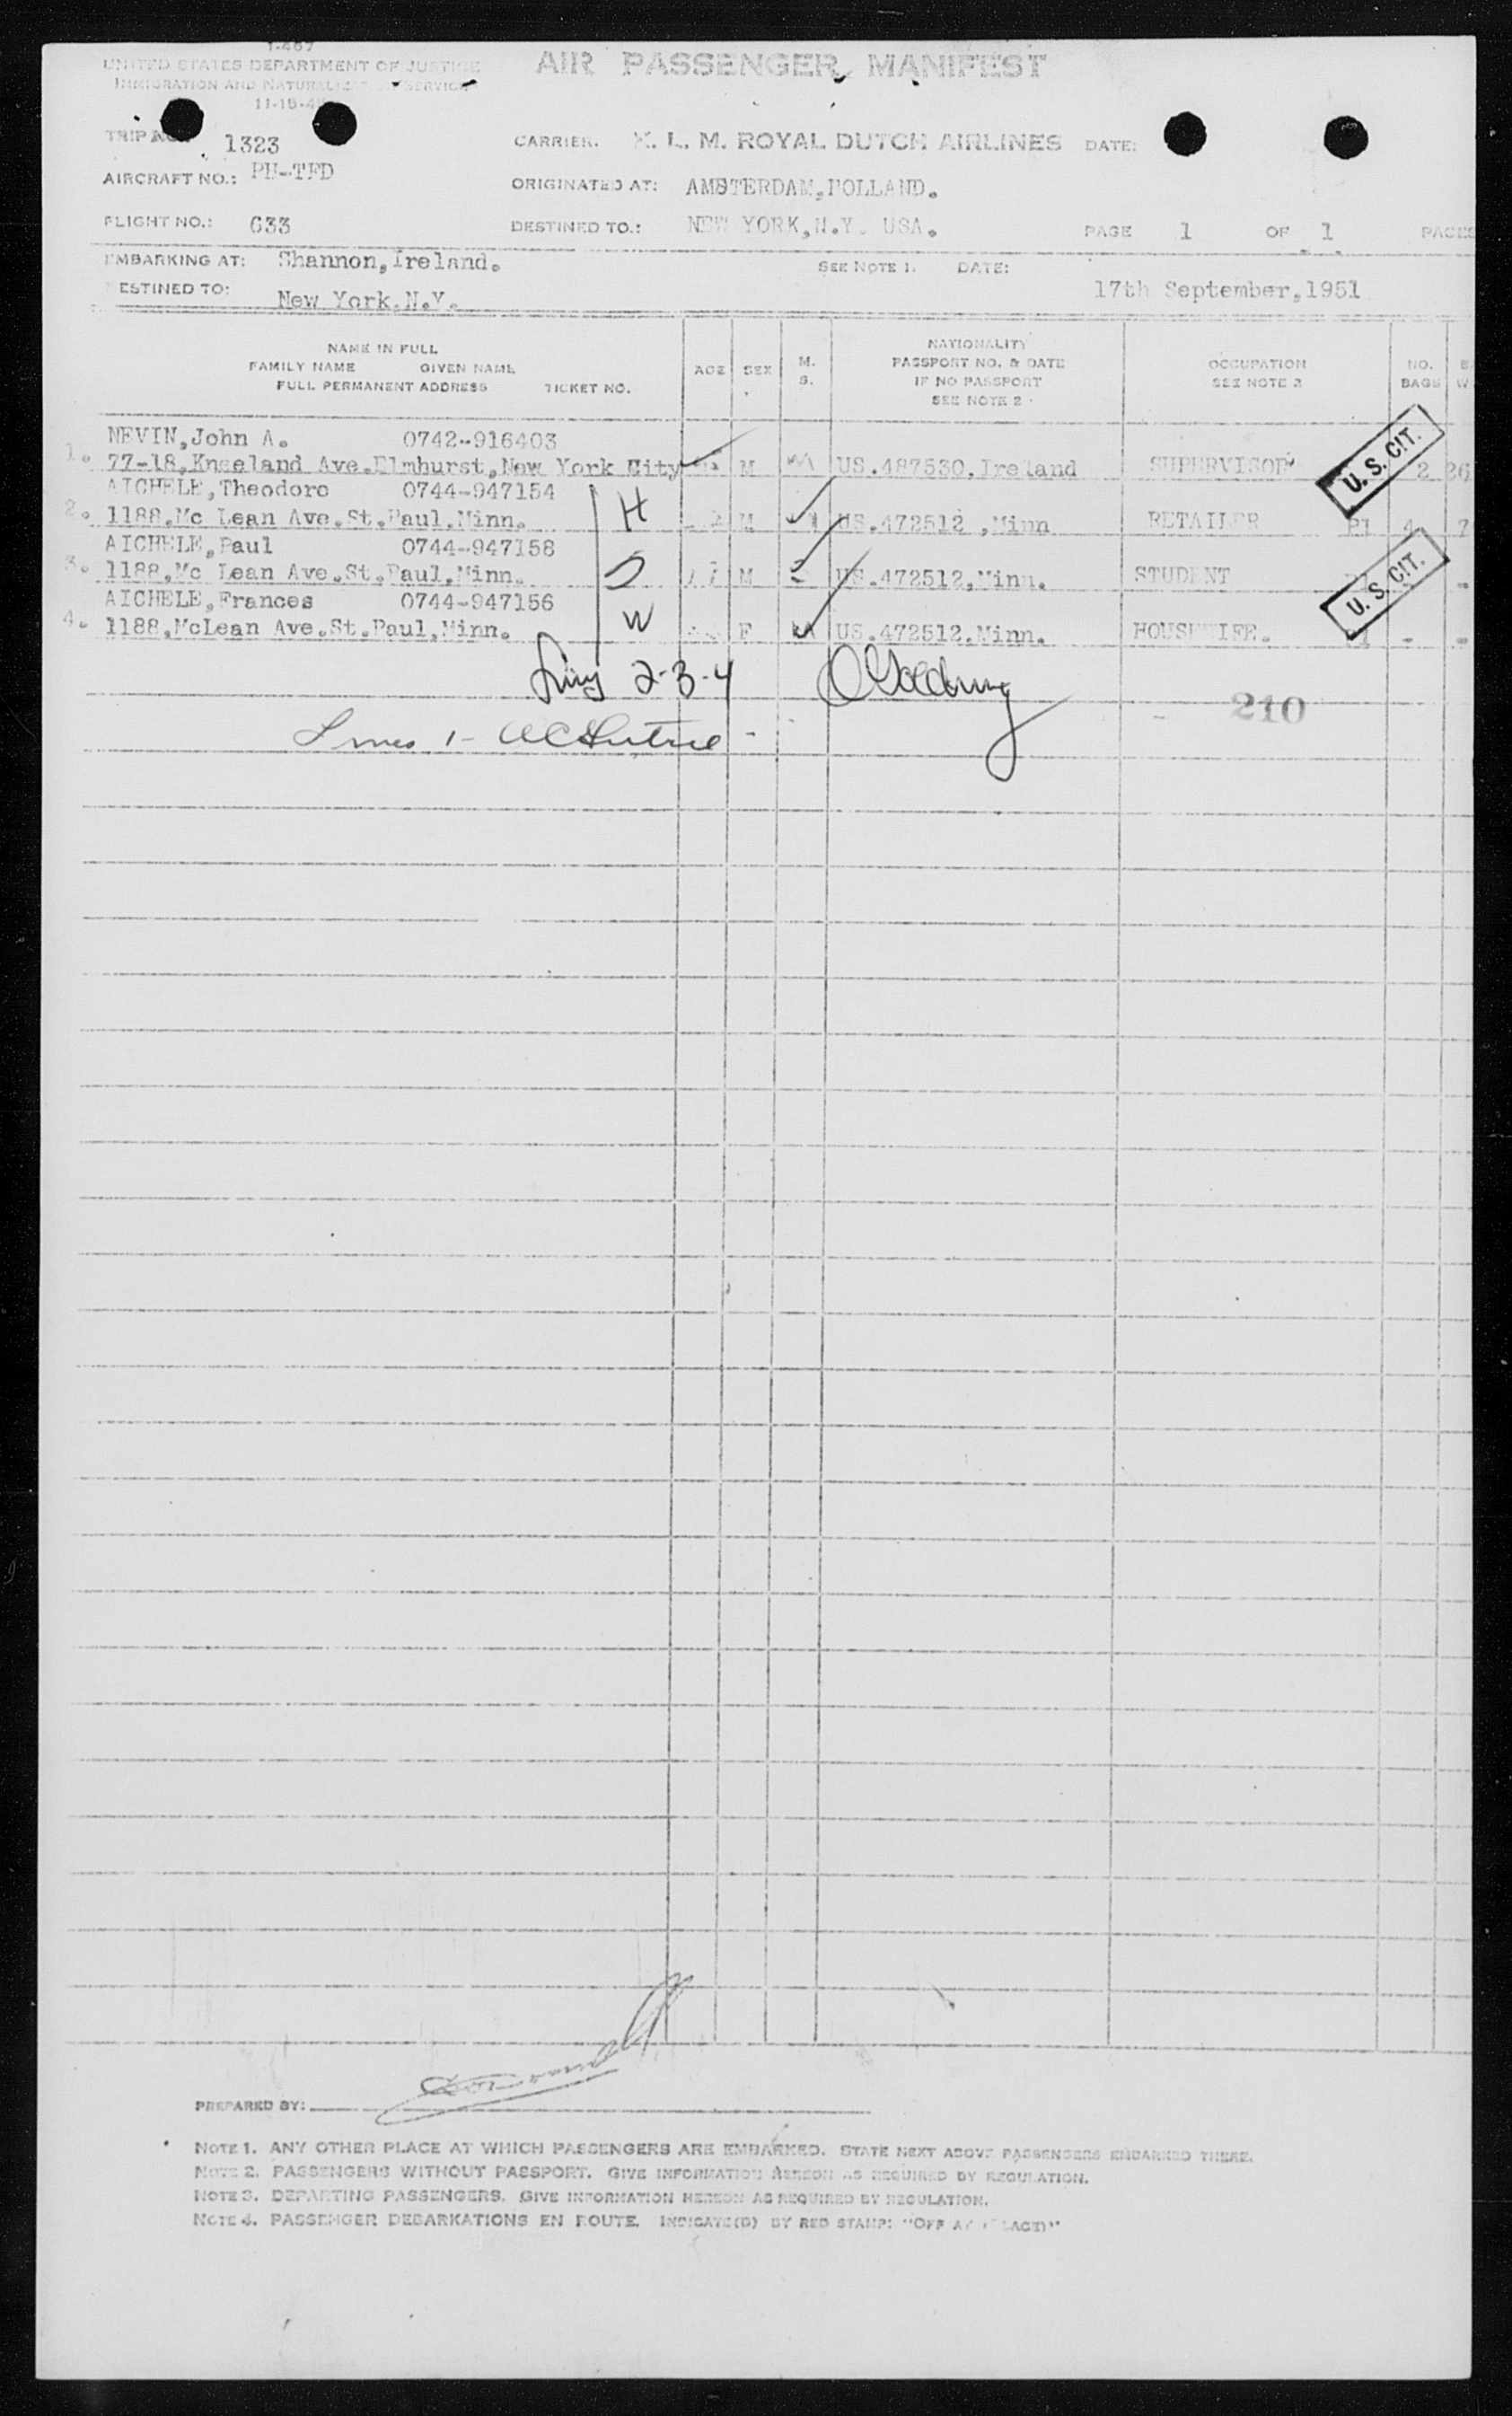 I-467
UNITED STATES DEPARTMENT OF JUSTICE
IMMIGRATION AND NATURALIZATION SERVICE
11-15-4
AIR PASSENGER MANIFEST
TRIP NO. 1323
CARRIER. K. L. M. ROYAL DUTCH AIRLINES DATE:
AIRCRAFT NO.: PH-TFD
ORIGINATED AT: AMSTERDAM,HOLLAND.
FLIGHT NO.: 633
DESTINED TO.: NEW YORK,N.Y. USA.
PAGE 1 OF 1 PAGES
EMBARKING AT: Shannon,Ireland.
SEE NOTE 1. DATE:
DESTINED TO: New York,N.Y.
17th September,1951
NAME IN FULL
FAMILY NAME GIVEN NAME
FULL PERMANENT ADDRESS TICKET NO.
AGE SEX M. S.
NATIONALITY
PASSPORT NO. & DATE
IF NO PASSPORT
SEE NOTE 2
OCCUPATION
SEE NOTE 2
NO. BAGS
B. W.
NEVIN,John A. 0742-916403
1. 77-18,Kneeland Ave.Elmhurst,New York City M M US.487530,Ireland SUPERVISOR 2 26
U. S. CIT.
AICHELE,Theodore 0744-947154
2. 1188,Mc Lean Ave.St.Paul,Minn. H M M US.472512 ,Minn RETAILER 4 7
AICHELE,Paul 0744-947158
3. 1188,Mc Lean Ave.St.Paul,Minn. S 17 M S US.472512,Minn. STUDENT -
U. S. CIT.
AICHELE,Frances 0744-947156
4. 1188,McLean Ave.St.Paul,Minn. W F M US.472512,Minn. HOUSEWIFE. - -
Lines 2-3-4
210
Lines 1-
PREPARED BY:
NOTE 1. ANY OTHER PLACE AT WHICH PASSENGERS ARE EMBARKED. STATE NEXT ABOVE PASSENGERS EMBARKED THERE.
NOTE 2. PASSENGERS WITHOUT PASSPORT. GIVE INFORMATION HEREON AS REQUIRED BY REGULATION.
NOTE 3. DEPARTING PASSENGERS. GIVE INFORMATION HEREON AS REQUIRED BY REGULATION.
NOTE 4. PASSENGER DEBARKATIONS EN ROUTE. INDICATE(D) BY RED STAMP: "OFF AT (PLACE)"